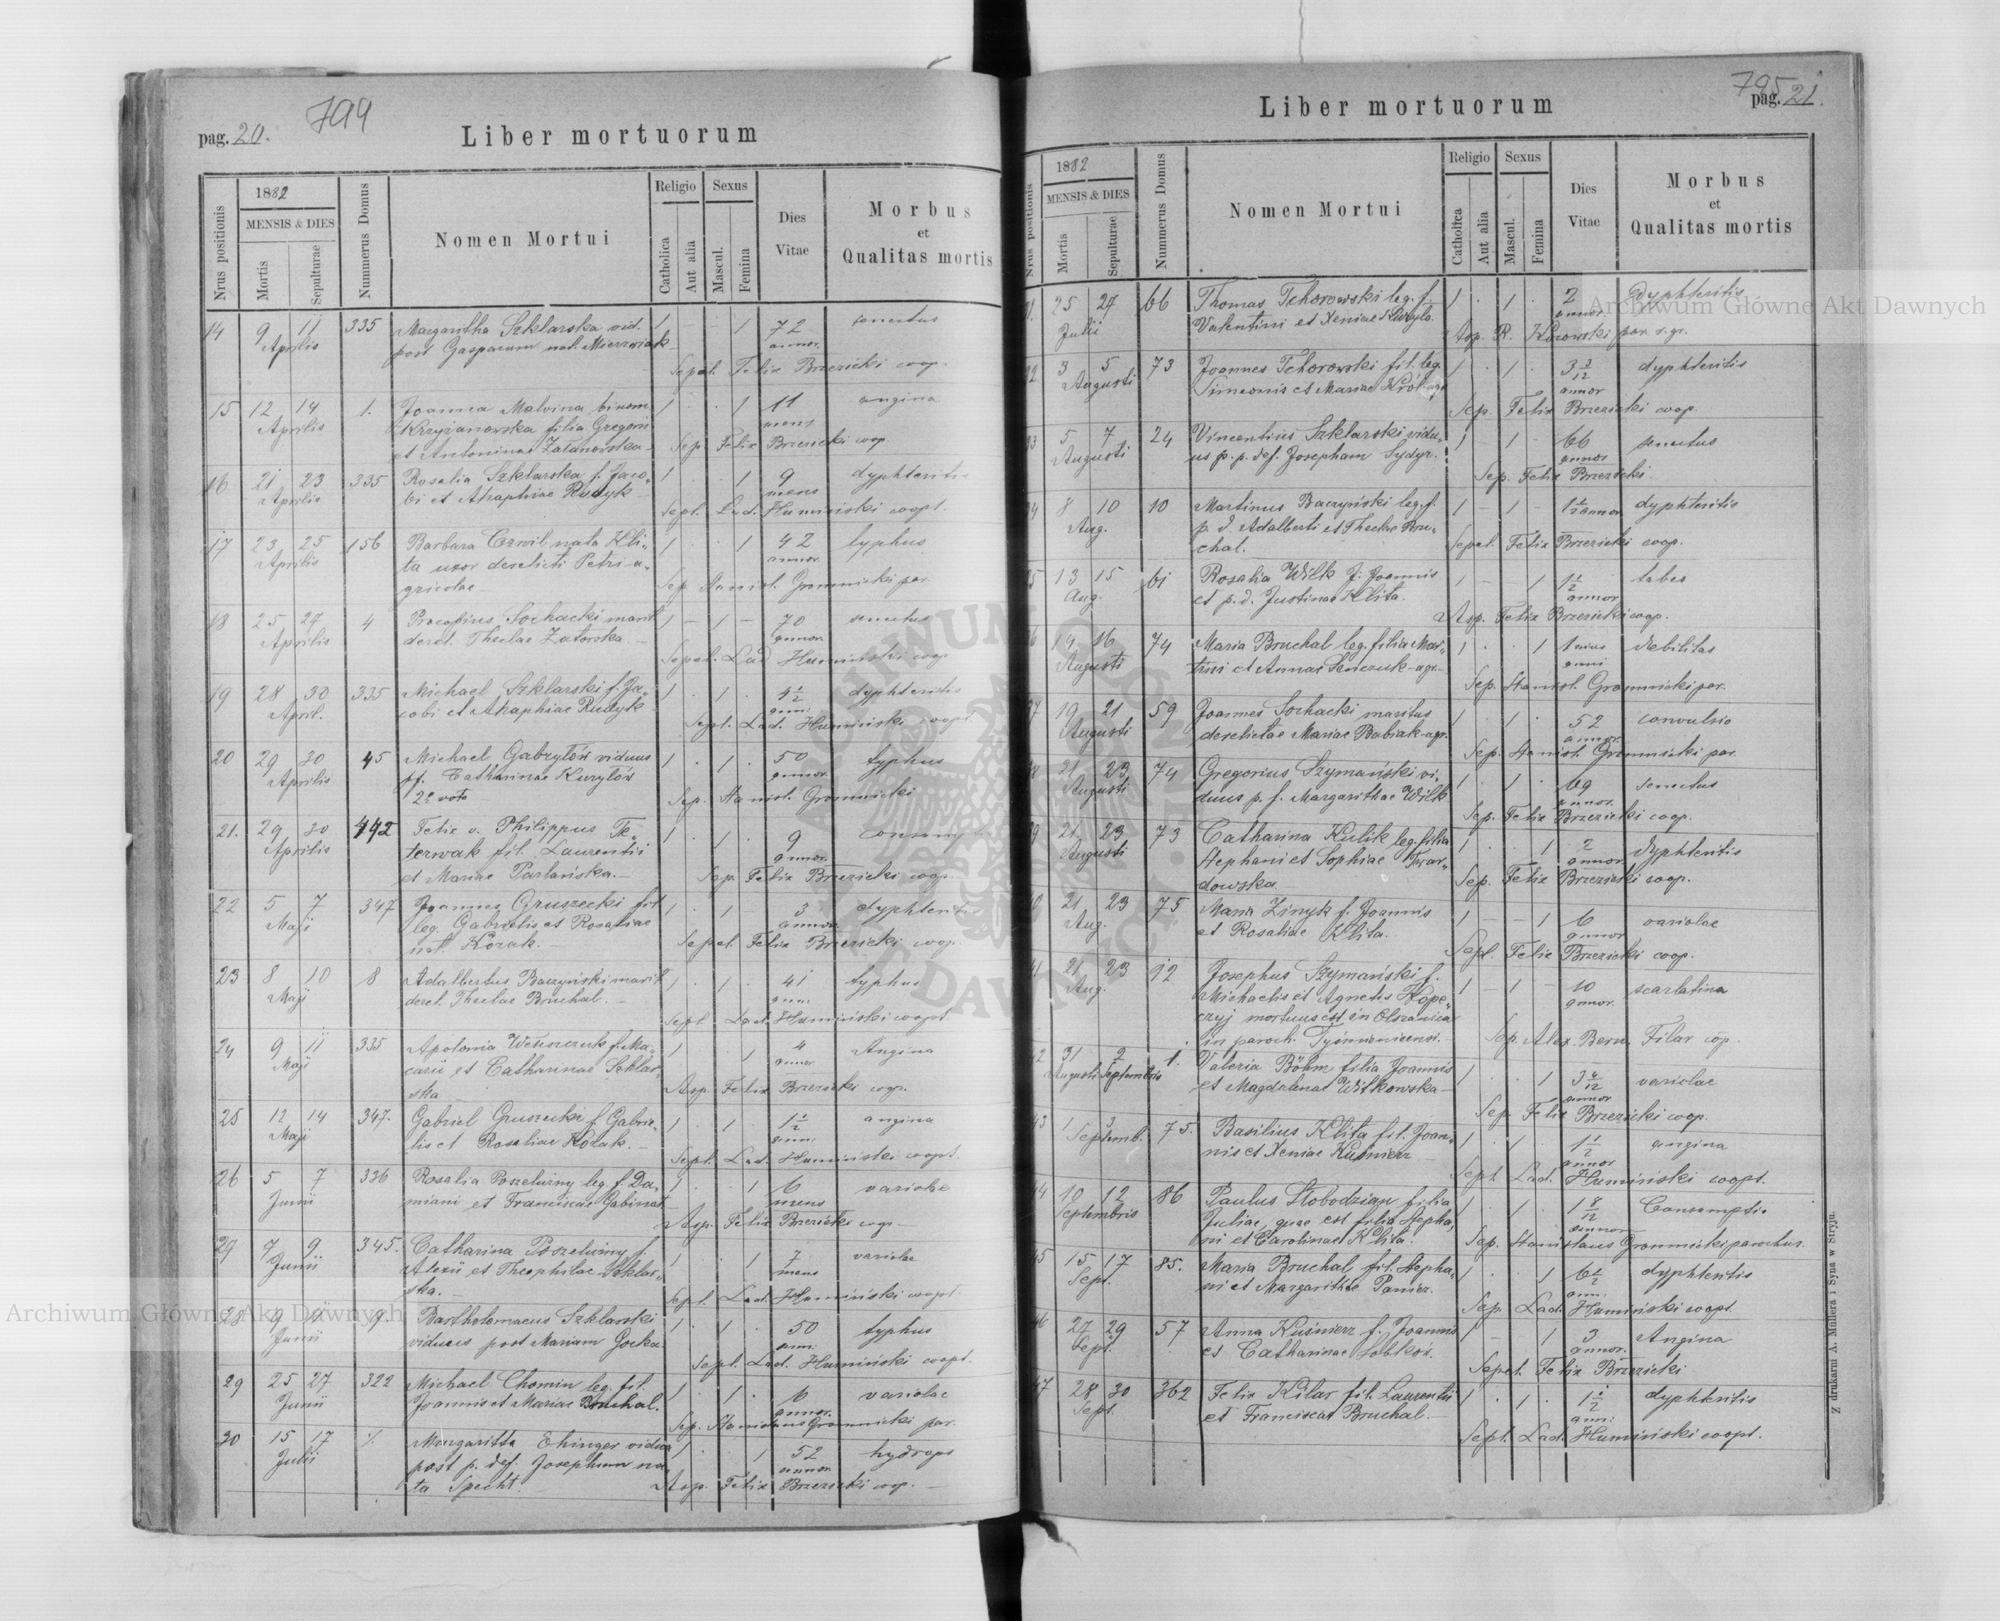 794
pag. 20.
Liber mortuorum
Nrus positionis
1882
MENSIS & DIES
Mortis
Sepulturae
Nummerus Domus
Nomen Mortui
Religio
Catholica
Aut alia
Sexus
Mascul.
Femina
Dies Vitae
Morbus
et
Qualitas mortis
14 9 11 335 Margaritha Szklarska vid. 1 1 72 senectus
Aprilis post Gasparum nat. annor.
Sepel. Felix Brzezicki coop.
15 12 14 1. Joanna Malvina binom. 1 1 11 angina
Aprilis Krzyżanowska filia Gregorii mens
et Antoninae Sep. Felix Brzezicki coop
16 21 23 335 Rosalia Szklarska f. Jaco- 1 1 9 dyphterit
Aprilis bi et Ahaphiae Rudyk mens
Sept. Lad. Humiński coopt.
17 23 25 156 Barbara Czwil nata Kli- 1 1 42 typhus
Aprilis ta uxor derelicti Petri a- annor.
gricolae Sep. Stanisl. Gromnicki par
18 25 27 4 Procopius Sochacki marit 1 – 1 – 70 senectus
Aprilis derel. Theclae Zatorska. annor
Sepel. Lad Humiński coop
19 28 30 335 Michael Szklarski f. Ja- 1 1 4 1/2 dyphteritis
April. cobi et Ahaphiae Rudyk anni.
Sept. Lad. Humiński coopt
20 29 30 45 Michael Gabrylów viduus 1 1 50 typhus
Aprilis pf. Catharinae Kurylów annor.
2º voto Sep. Stanisl. Gromnicki
21. 29 30 492 Felix v. Philippus Te- 1 1 9
Aprilis terwak fil. Laurentii annor.
et Mariae Parlańska. Sep. Felix Brzezicki coop.
22 5 7 347 Joannes Gruszecki fil 1 1 3 dyphterit
Maji leg. Gabrielis et Rosaliae annor.
nat. Kozak. Sepel. Felix Brzezicki coop.
23 8 10 8 Adalbertus Baczyński marit 1 1 41 typhus
Maji derel. Theclae Bruchal. ann.
Sept. Lad. Humiński coopt
24 9 11 335 Apolonia f. Ma- 1 1 4 Angina
Maji carii et Catharinae Szklar- annor
ska Asp. Felix Brzezicki coop.
25 12 14 347. Gabriel Gruszecki f. Gabrie- 1 1 1 1/2 angina
Maji lis et Rosaliae Kozak. ann.
Sept. Lad. Humiński coopt.
26 5 7 336 Rosalia Poszeluzny leg. f. Da- 1 1 6 variolae
Junii miani et Franciscae Gabinat mens
Asp. Felix Brzezicki coop.
27 7 9 345. Catharina Poszeluzny f. 1 1 7 variolae
Junii Alexii et Theophilae Szklar- mens
ska. Sept. Lad. Humiński coopt.
28 9 Bartholomaeus Szklarski 1 1 50 typhus
Junii viduus post Mariam Gorka ann.
Sept. Lad. Humiński coopt.
29 25 27 322 Michael Chomin leg. fil. 1 1 6 variolae
Junii Joannis et Mariae Bruchal. annor.
Sep. Stanislaus Gromnicki par.
30 15 17 Margaritta Ehinger vidua 1 1 52 hydrops
Julii post p. def. Josephum na- annor
ta Specht. Asp. Felix Brzezicki coop.
795
pag. 21.
Liber mortuorum
Nrus positionis
1882
MENSIS & DIES
Mortis
Sepulturae
Nummerus Domus
Nomen Mortui
Religio
Catholica
Aut alia
Sexus
Mascul.
Femina
Dies Vitae
Morbus
et
Qualitas mortis
1. 25 27 66 Thomas Tchorowski leg. f. 1 1 2 Dyphteritis
Julii Valentini et Xeniae Kuryło annor
Asp. R. par. r. gr.
2 3 5 73 Joannes Tchorowski fil. leg. 1 1 3 3/12 dyphteritis
Augusti Simeonis et Mariae Król agr annor
Sep. Felix Brzezicki coop.
3 5 7 24 Vincentius Szklarski vidu- 1 – 1 66 senectus
Augusti us p. p. def. Josepham Sydyr. annor
Sep. Felix Brzezicki.
4 8 10 10 Martinus Baczyński leg. f. 1 – 1 – dyphteritis
Aug. p. d. Adalberti et Theclae Bru- annor
chal. Sepel. Felix Brzezicki coop.
5 13 15 61 Rosalia Wilk f. Joannis 1 – 1 1 1/2 tabes
Aug. et p. d. Justinae Klita. annor
Asp. Felix Brzezicki coop.
6 14 16 74 Maria Bruchal leg. filia Mar- 1 1 1 debilitas
Augusti tini et Annae Senczuk agr. anni
Sep. Stanisl. Gromnicki par.
7 19 21 59 Joannes Sochacki maritus 1 1 52 convulsio
Augusti derelictae Mariae Babiak agr. annor
Sep. Stanisl. Gromnicki par.
8 21 23 74 Gregorius Szymański vi- 1 1 69 senectus
Augusti duus p. f. Margarithae Wilk annor.
Sep. Felix Brzezicki coop.
9 21 23 73 Catharina Kulik leg. filia 1 1 2 dyphteritis
Augusti Stephani et Sophiae Twar- annor
dowska Sep. Felix Brzezicki coop.
21 23 75 Maria Zinyk f. Joannis 1 – – 1 6 variolae
Aug. et Rosaliae Klita. annor
Sept. Felix Brzezicki coop.
1 21 23 12 Josephus Szymański f. 1 – 1 – 10 scarlatina
Aug. Michaelis et Agnetis Kope- annor.
czyj mortuus est in Olszanica
in paroch. Tyśmienicensi. Sep. Alex. Bern. Filar cop.
42 31 2 1. Valeria Böhm filia Joannis 1 1 3 variolae
Augusti Septembris et Magdalenae Witkowska annor
Sep. Felix Brzezicki coop.
43 1 3 75. Basilius Klita fil. Joan- 1 1 1 1/2 angina
Septemb. nis et Xeniae Kuśnierz annor
Sept. Lad. Humiński coopt.
44 10 12 86 Paulus Słobodzian filia 1 1 1 8/12 Consumptio
Septembris Juliae, quae est filia Stepha- annor
ni et Carolinae Klita. Sep. Stanislaus Gromnicki parochus.
45 15 17 85. Maria Bruchal fil. Stepha- 1 1 6 1/2 dyphteritis
Sept. ni et Margarithae Paniez. ann.
Sep. Lad. Humiński coopt.
46 27 29 57 Anna Kuśnierz f. Joannis 1 – 1 3 Angina
Sept. et Catharinae Sobków. annor.
Sepel. Felix Brzezicki
47 28 30 362 Felix Kilar fil. Laurentii 1 1 1 1/2 dyphteritis
Sept. et Franciscae Bruchal. ann.
Sept. Lad. Humiński coopt.
Z drukarni A. Müllera i Syna w Stryju.
Archiwum Główne Akt Dawnych
Archiwum Główne Akt Dawnych
ARCHIWUM GŁÓWNE AKT DAWNYCH